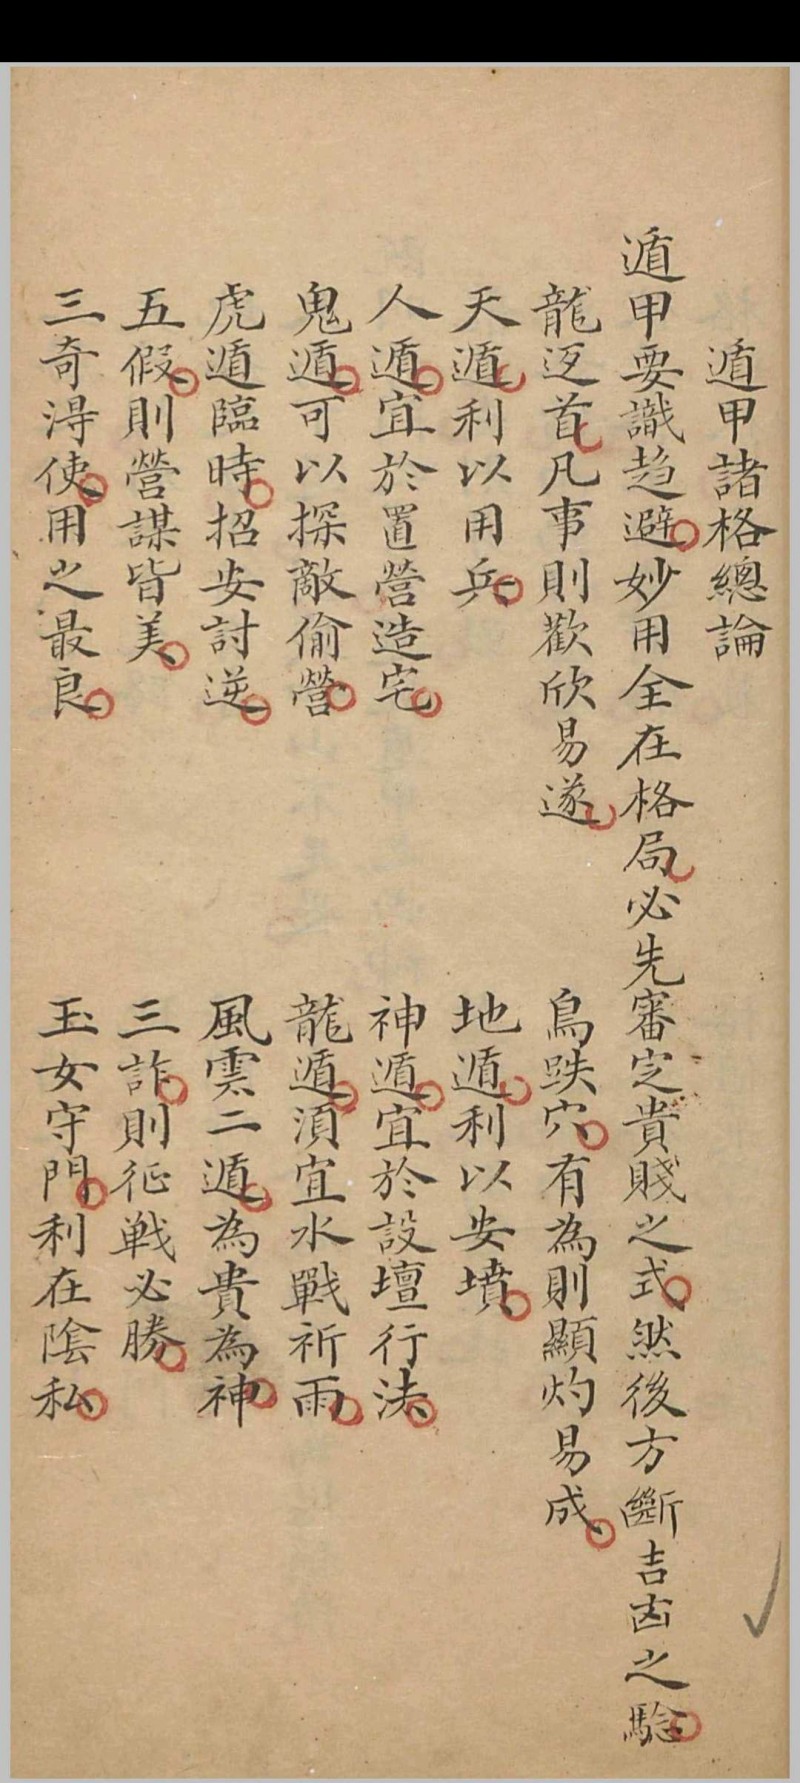 遁甲諸格總論
遁甲要識趨避妙用全在格局必先審定貴賤之式然後方斷吉凶之驗
龍返首凡事則歡欣易遂　鳥跌穴有為則顯灼易成
天遁利以用兵　地遁利以安墳
人遁宜於置營造宅　神遁宜於設壇行法
鬼遁可以探敵偷營　龍遁須宜水戰祈雨
虎遁臨時招安討逆　風雲二遁為貴為神
五假則營謀皆美　三詐則征戰必勝
三奇淂使用之最良　玉女守門利在陰私